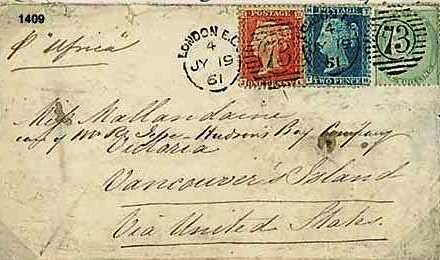 1409
p "Africa"
LONDON E.C
4
JY 19
61
73
TWO PENCE
73
Miss Mallandaine
care of Hudson's Bay Company
Victoria
Vancouver's Island
Via United States